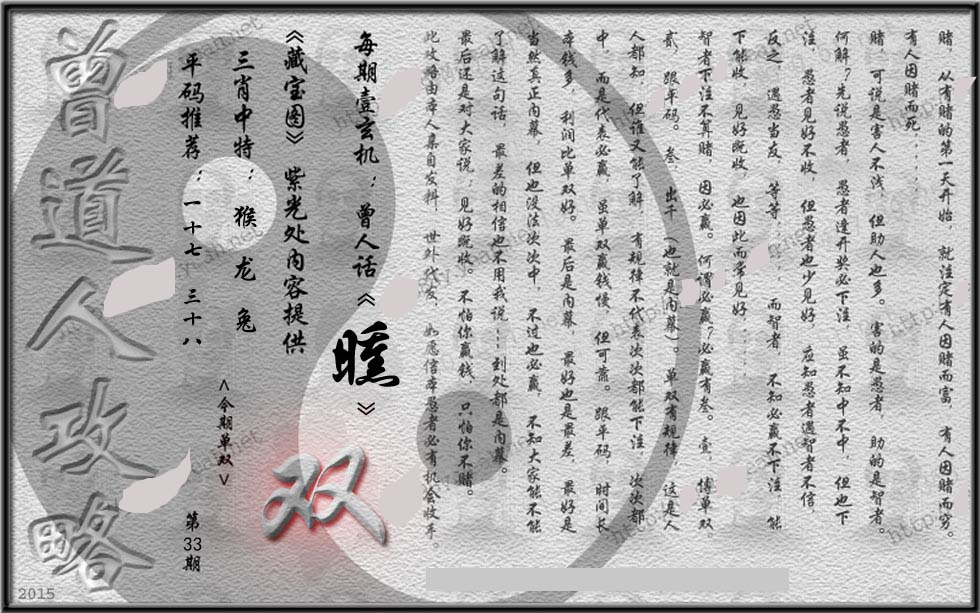 赌，从有赌的第一天开始，就注定有人因赌而富，有人因赌而穷。
有人因赌而死．．．．．．
赌，可说是害人不浅，但助人也多。害的是愚者，助的是智者。
何解？先说愚者，愚者逢开奖必下注，虽不知中不中，但也下
注，愚者见好不收，但愚者也少见好，应知愚者遇智者不信，
反之，遇愁当友，等等．．．．．．而智者，不知必赢不下注，能
下能收，见好既收，也因此而常见好．．．．．．
智者下注不算赌，因必赢。何谓必赢？必赢有叁。壹，博单双，
贰，跟平码。叁，出千（也就是内幕）。单双有规律，这是人
人都知，但谁又能了解，有规律不代表次次都能下注，次次都
中，而是代表必赢，虽单双赢钱慢，但可靠。跟平码，时间长，
本钱多，利润比单双好。最后是内幕，最好也是最差，最好是
当然真正内幕，但也没法次次中，不过也必赢，不知大家能不能
了解这句话，最差的相信也不用我说……到处都是内幕。
最后还是对大家说：见好既收。不怕你赢钱，只怕你不赌。
此攻略由本人集自发料，世外代友，如愿信本愚者必有机会收手。
每期壹玄机：曾人话《瞧》
《藏宝图》紫光处内容提供
三肖中特：猴 龙 兔
平码推荐：一十七 三十八
<今期单双>
双
第33期
曾道人攻略
2015